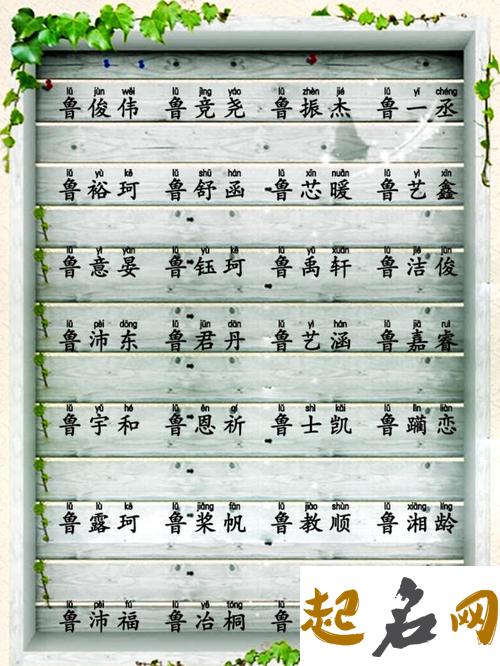 lǔ jùn wěi lǔ jìng yáo lǔ zhèn jié lǔ yī chéng
鲁俊伟 鲁竞尧 鲁振杰 鲁一丞
lǔ yù kē lǔ shū hán lǔ xīn nuǎn lǔ yì xīn
鲁裕珂 鲁舒函 鲁芯暖 鲁艺鑫
lǔ yì yàn lǔ yù kē lǔ yǔ xuān lǔ jié jùn
鲁意晏 鲁钰珂 鲁禹轩 鲁洁俊
lǔ pèi dōng lǔ jūn dān lǔ yì hán lǔ jiā ruì
鲁沛东 鲁君丹 鲁艺涵 鲁嘉睿
lǔ yǔ hé lǔ ēn qí lǔ shì kǎi lǔ lìn liàn
鲁宇和 鲁恩祈 鲁士凯 鲁躏恋
lǔ lù kē lǔ jiǎng fān lǔ jiào shùn lǔ xiāng líng
鲁露珂 鲁桨帆 鲁教顺 鲁湘龄
lǔ pèi fú lǔ yě tóng lǔ
鲁沛福 鲁冶桐 鲁
起名网